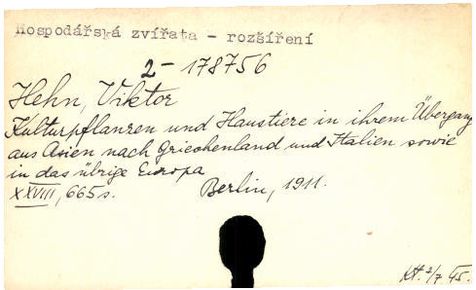 Hospodářská zvířata - rozšíření
2-178756
Hehn, Viktor
Kulturpflanzen und Haustiere in ihrem Übergang
aus Asien nach Griechenland und Italien sowie
in das übrige Europa
XXVIII, 665 s. Berlin, 1911.
2/7 45.